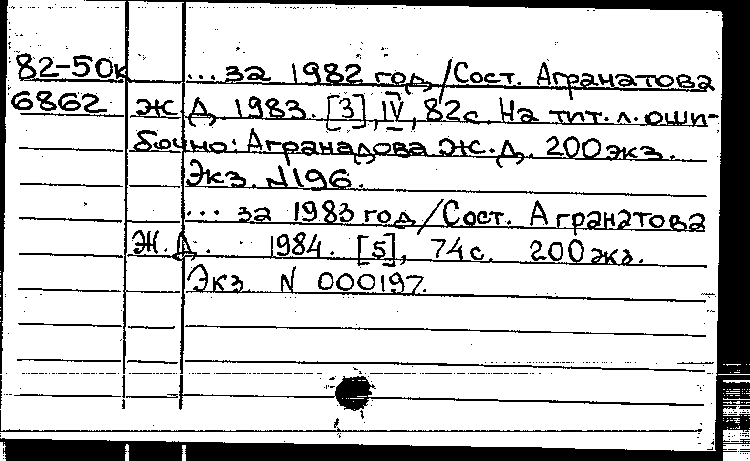 82-50к ... за 1982 год / Сост. Агранатова
6862 Ж.Д. 1983. [3], IV, 82с. На тит. л. оши-
бочно: Агранадова Ж.Д. 200 экз.
Экз. N 196.
... за 1983 год / Сост. Агранатова
Ж.Д. 1984. [5], 74 с. 200 экз.
Экз. N 000197.